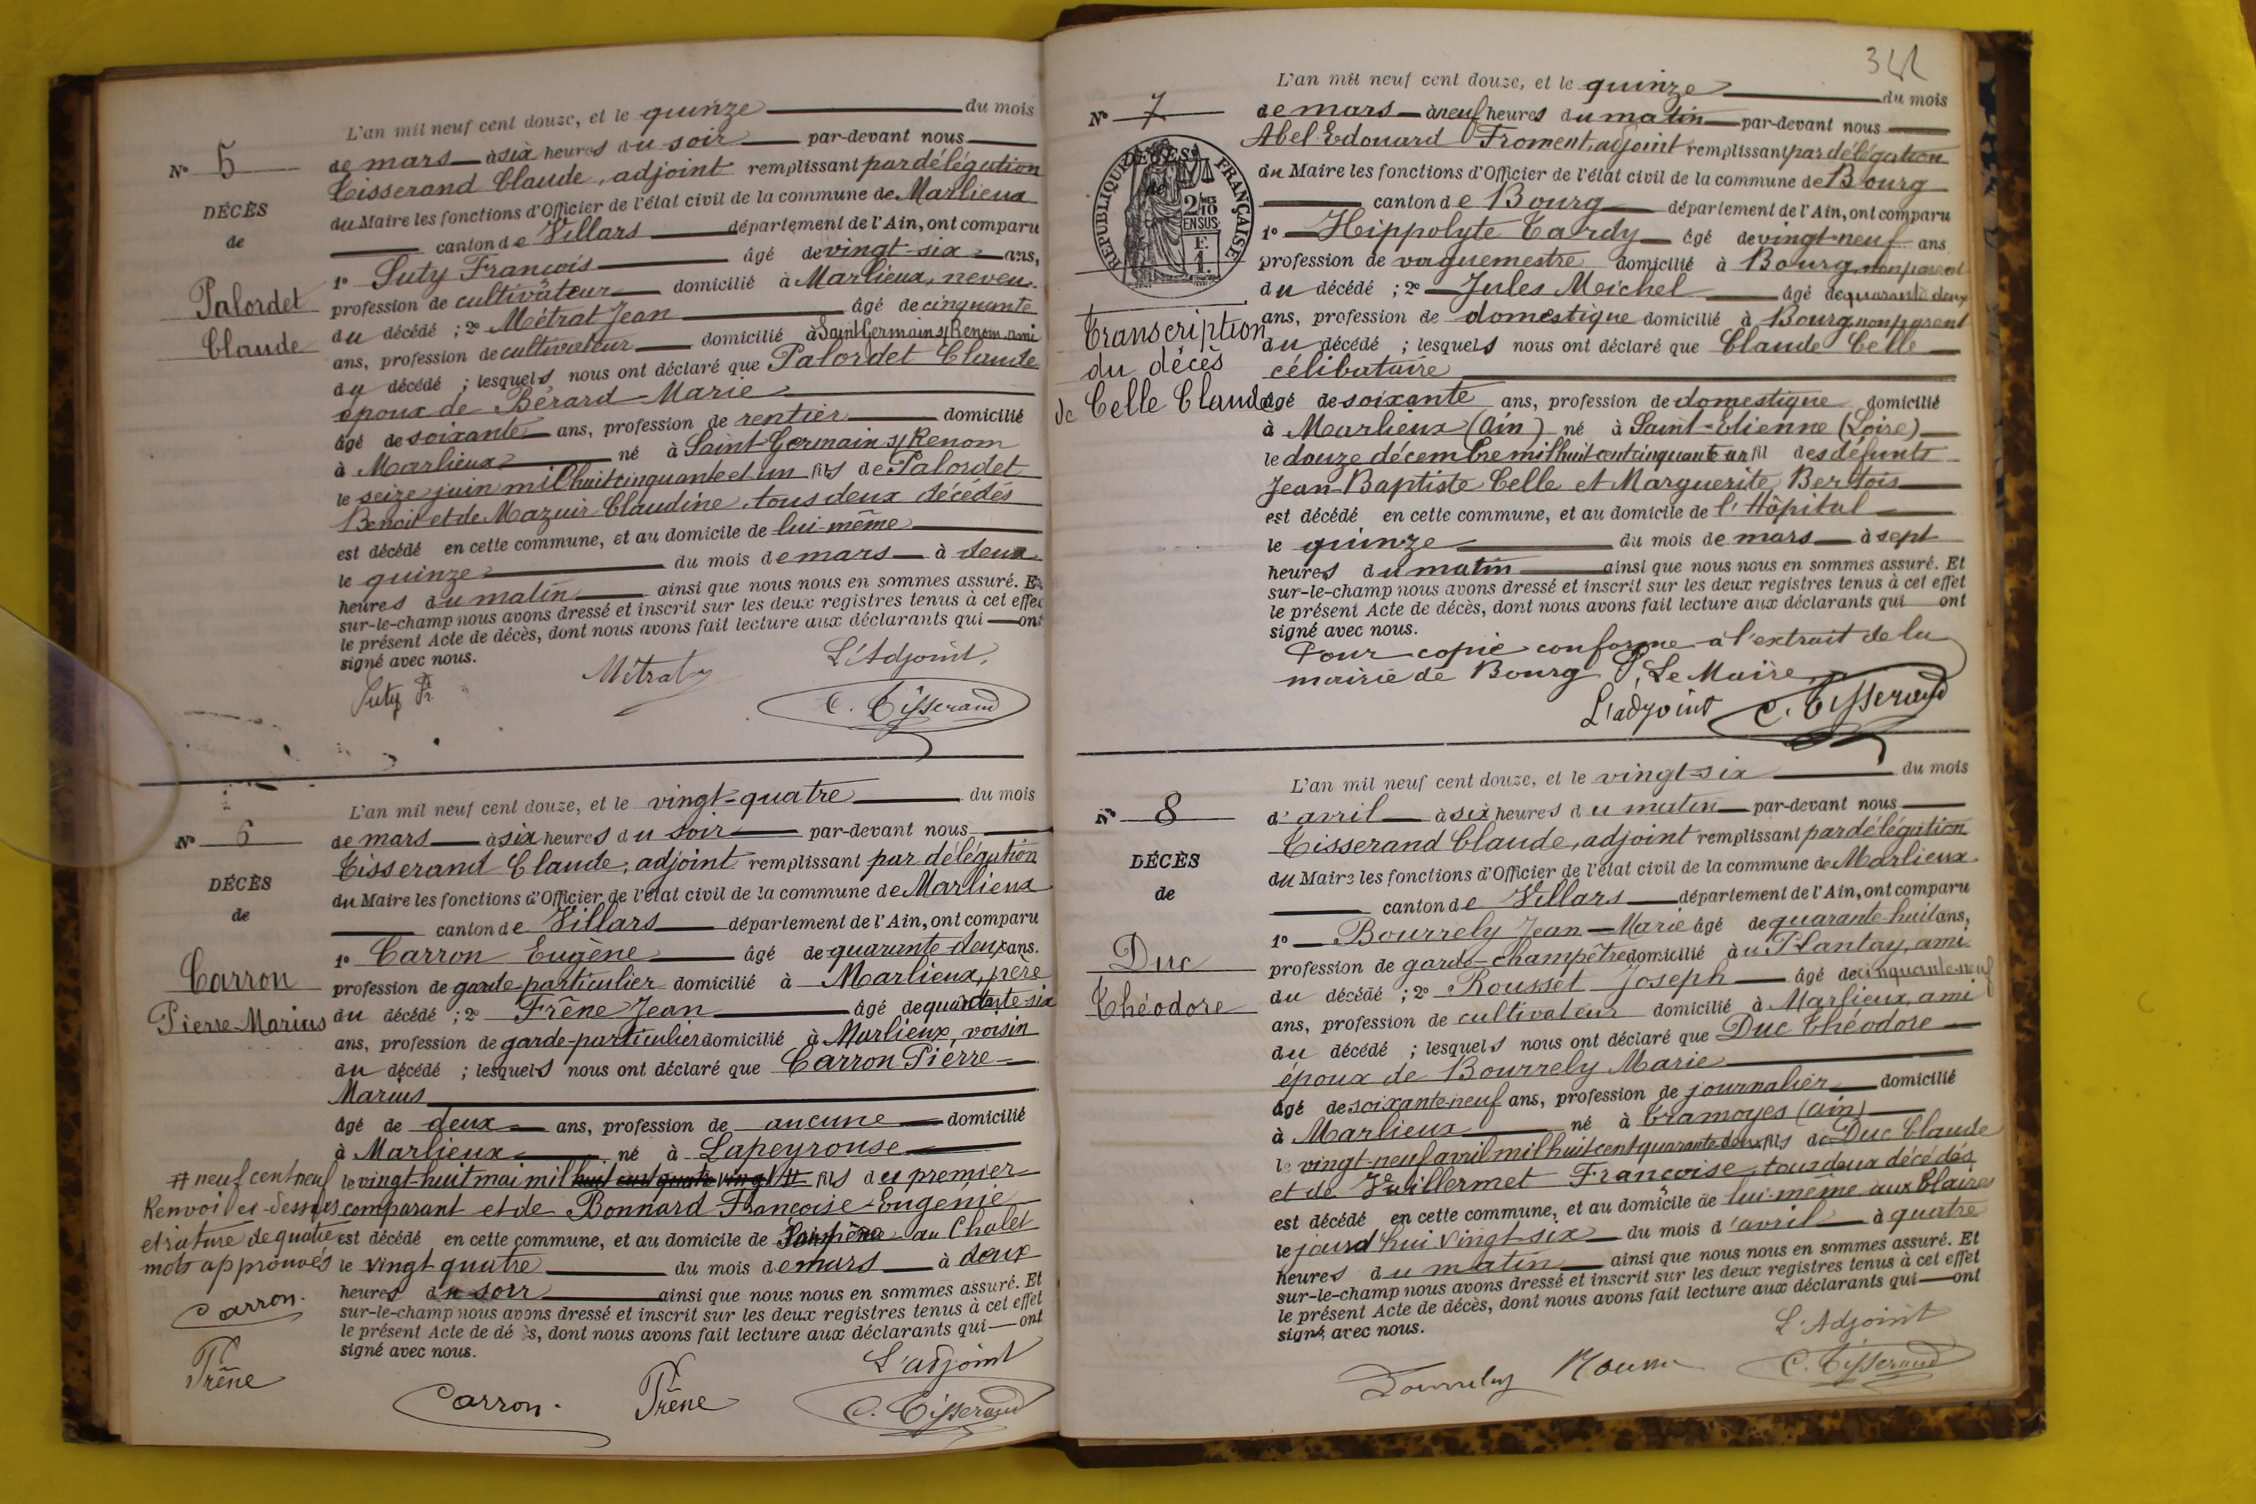 L'an mil neuf cent douze, et le quinze du mois
N° 5 de mars à six heures du soir par-devant nous
Tisserand Claude, adjoint remplissant par délégation
DÉCÈS du Maire les fonctions d'Officier de l'état civil de la commune de Marlieux
de canton de Villars département de l'Ain, ont comparu
1° Suty François âgé de vingt-six ans,
Palordet profession de cultivateur domicilié à Marlieux, neveu
Claude du décédé ; 2° Métrat Jean âgé de cinquante
ans, profession de cultivateur domicilié à Saint Germain s/ Renom ami
du décédé ; lesquels nous ont déclaré que Palordet Claude
époux de Bérard Marie
âgé de soixante ans, profession de rentier domicilié
à Marlieux né à Saint-Germain s/ Renom
le seize juin mil huit cinquante et un fils de Palordet
Benoit et de Mazuir Claudine, tous deux décédés
est décédé en cette commune, et au domicile de lui-même
le quinze du mois de mars à deux
heures du matin ainsi que nous nous en sommes assuré. Et
sur-le-champ nous avons dressé et inscrit sur les deux registres tenus à cet effet
le présent Acte de décès, dont nous avons fait lecture aux déclarants qui ont
signé avec nous.
Suty Fr Métrat L'Adjoint,
C. Tisserand
L'an mil neuf cent douze, et le vingt-quatre du mois
N° 6 de mars à six heures du soir par-devant nous
Tisserand Claude, adjoint remplissant par délégation
DÉCÈS du Maire les fonctions d'Officier de l'état civil de la commune de Marlieux
de canton de Villars département de l'Ain, ont comparu
1° Carron Eugène âgé de quarante-deux ans.
Carron profession de garde-particulier domicilié à Marlieux, père
Pierre-Marius du décédé ; 2° Frêne Jean âgé de quarante-six
ans, profession de garde-particulier domicilié à Marlieux, voisin
du décédé ; lesquels nous ont déclaré que Carron Pierre-
Marius
âgé de deux ans, profession de aucune domicilié
à Marlieux né à Lapeyrouse
# neuf cent neuf le vingt-huit mai mil huit cent quatre vingt # fils du premier
Renvoi ci-dessus comparant et de Bonnard Françoise-Eugénie
et rature de quatre est décédé en cette commune, et au domicile de son père au Chalet
mots approuvés le vingt quatre du mois de mars à deux
heures du soir ainsi que nous nous en sommes assuré. Et
Carron. sur-le-champ nous avons dressé et inscrit sur les deux registres tenus à cet effet
le présent Acte de décès, dont nous avons fait lecture aux déclarants qui ont
Frêne signé avec nous.
Carron. Frêne L'adjoint
C. Tisserand
L'an mil neuf cent douze, et le quinze du mois
N° 7 de mars à neuf heures du matin par-devant nous
Abel Edouard Froment, adjoint remplissant par délégation
du Maire les fonctions d'Officier de l'état civil de la commune de Bourg
canton de Bourg département de l'Ain, ont comparu
RÉPUBLIQUE FRANÇAISE
DÉCÈS
de
2/10 EN SUS
F. 1.
1° Hippolyte Tardy âgé de vingt-neuf ans
profession de vaguemestre domicilié à Bourg, non parent
du décédé ; 2° Jules Meichel âgé de quarante deux
Transcription ans, profession de domestique domicilié à Bourg, non parent
du décès du décédé ; lesquels nous ont déclaré que Claude Celle
célibataire
de Celle Claude âgé de soixante ans, profession de domestique domicilié
à Marlieux (Ain) né à Saint-Etienne (Loire)
le douze décembre mil huit cent cinquante un fil des défunts
Jean-Baptiste Celle et Marguerite Bertois
est décédé en cette commune, et au domicile de l'Hôpital
le quinze du mois de mars à sept
heures du matin ainsi que nous nous en sommes assuré. Et
sur-le-champ nous avons dressé et inscrit sur les deux registres tenus à cet effet
le présent Acte de décès, dont nous avons fait lecture aux déclarants qui ont
signé avec nous.
Pour copie conforme à l'extrait de la
mairie de Bourg P. Le Maire,
L'adjoint C. Tisserand
L'an mil neuf cent douze, et le vingt-six du mois
N° 8 d'avril à six heures du matin par-devant nous
Tisserand Claude, adjoint remplissant par délégation
DÉCÈS du Maire les fonctions d'Officier de l'état civil de la commune de Marlieux
de canton de Villars département de l'Ain, ont comparu
1° Bourrely Jean-Marie âgé de quarante-huit ans,
Duc profession de garde-champêtre domicilié au Plantay, ami
Théodore du décédé ; 2° Rousset Joseph âgé de cinquante-neuf
ans, profession de cultivateur domicilié à Marlieux, ami
du décédé ; lesquels nous ont déclaré que Duc Théodore
époux de Bourrely Marie
âgé de soixante-neuf ans, profession de journalier domicilié
à Marlieux né à Tramoyes (Ain)
le vingt-neuf avril mil huit cent quarante deux fils de Duc Claude
et de Vuillermet Françoise, tous deux décédés
est décédé en cette commune, et au domicile de lui-même aux Claires
le jourd'hui vingt-six du mois d'avril à quatre
heures du matin ainsi que nous nous en sommes assuré. Et
sur-le-champ nous avons dressé et inscrit sur les deux registres tenus à cet effet
le présent Acte de décès, dont nous avons fait lecture aux déclarants qui ont
signé avec nous. L'Adjoint
Bourrely C. Tisserand